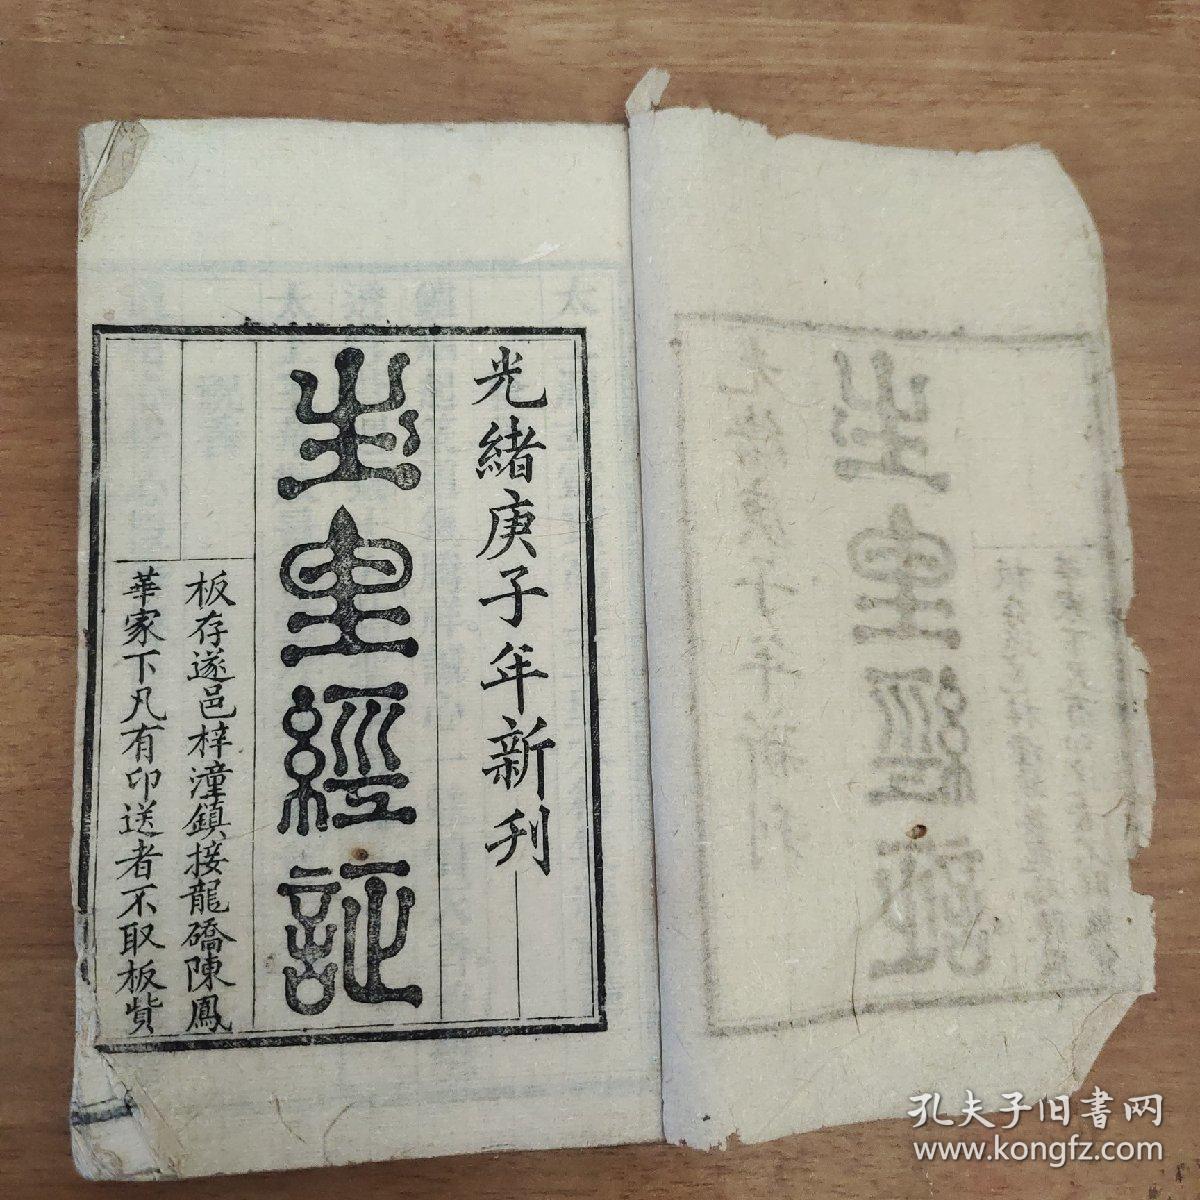 光緒庚子年新刊
皇經
板存遂邑梓潼鎮接龍礄陳鳳
華家下凡有印送者不取板貲
孔夫子旧書网
www.kongfz.com